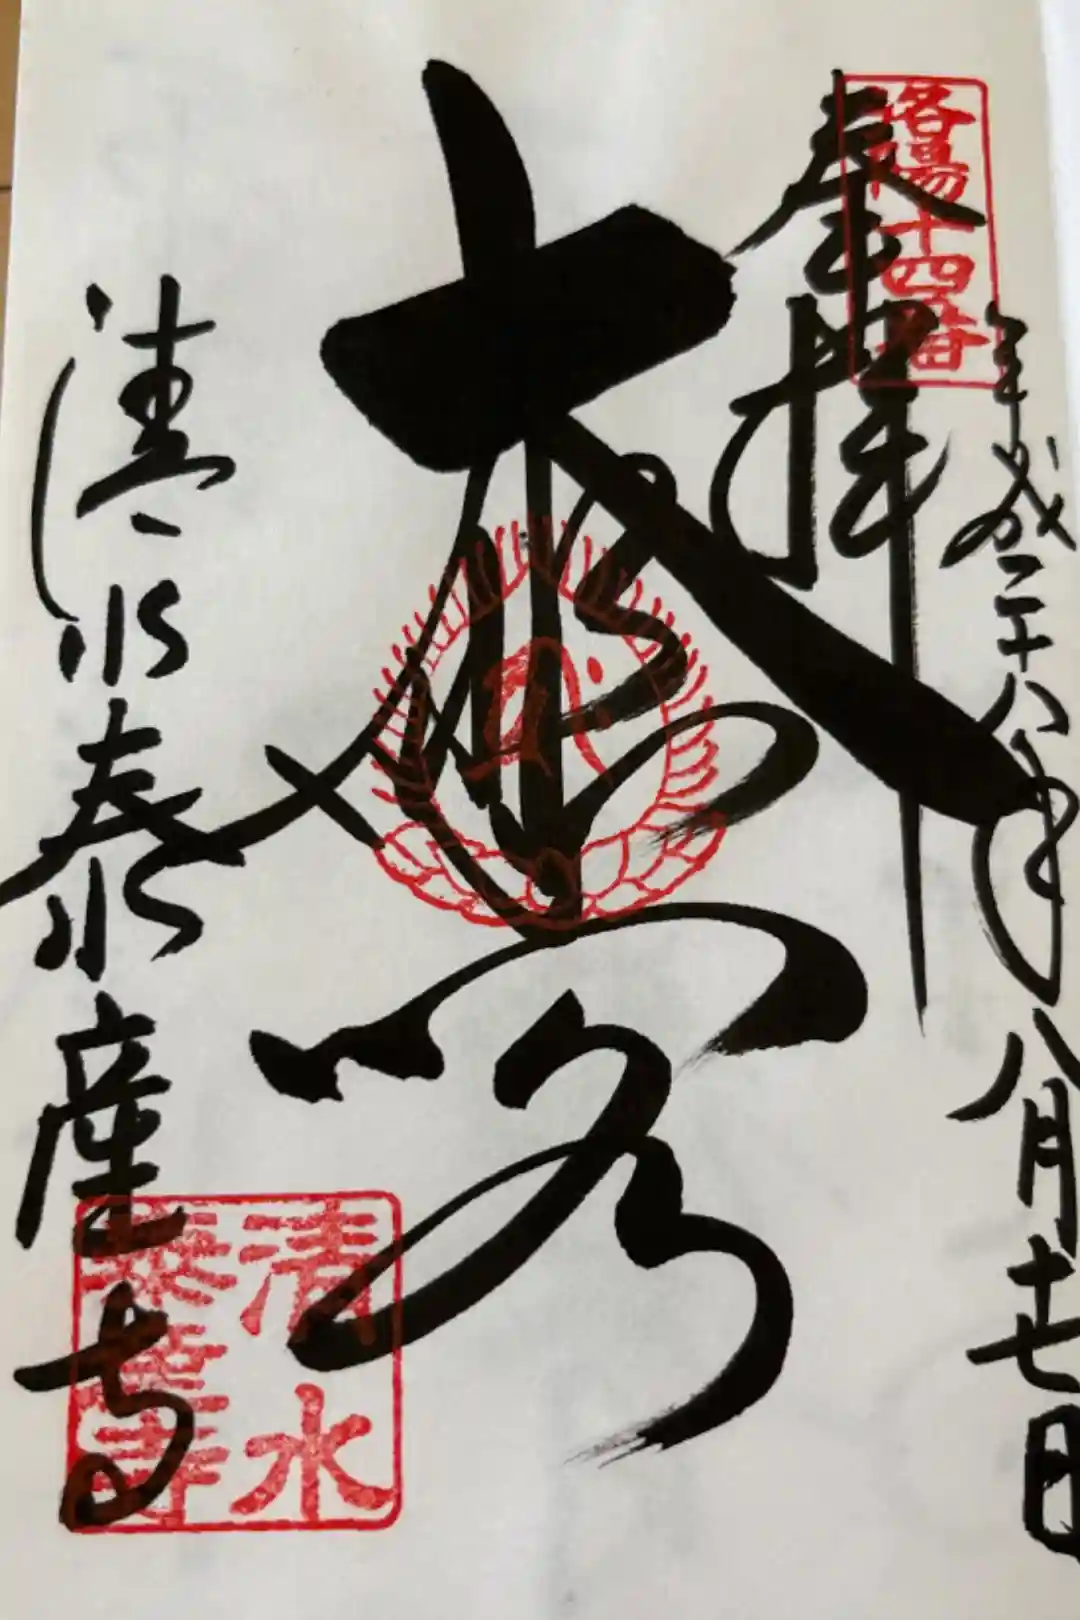 平成二十八年八月十七日
奉拝
洛陽十四番
大悲閣
清水泰産寺
清水
泰産寺